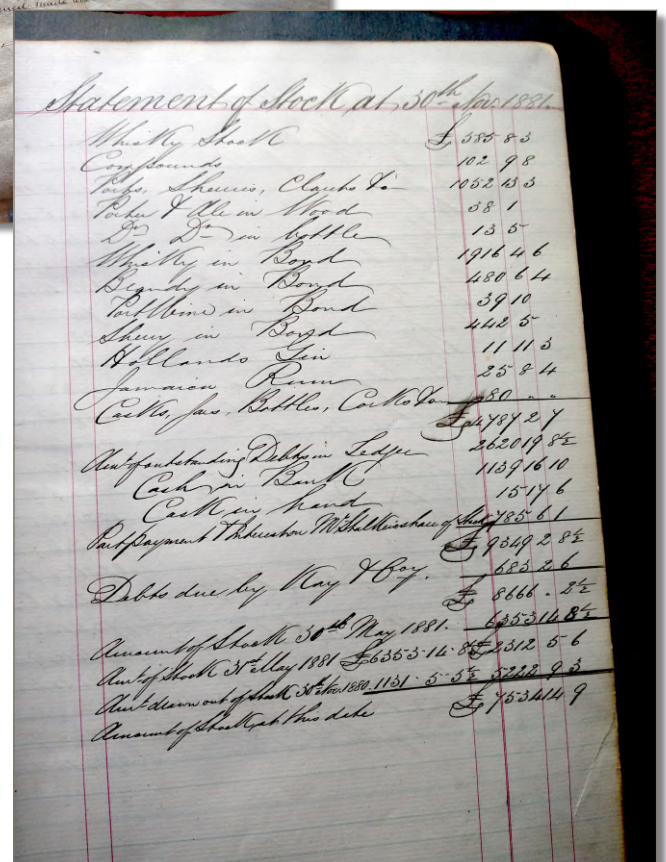 Statement of Stock at 30th Nov. 1881.
Whisky Stock £ 385 8 3
Compounds 102 9 8
Ports, Sherries, Clarets &c 1052 13 3
Porter & Ale in Wood 38 1
Do Do in bottle 13 5
Whisky in Bond 1916 4 6
Brandy in Bond 480 6 4
Port Wine in Bond 39 10
Sherry in Bond 442 5
Hollands Gin 11 11 3
Jamaica Rum 25 8 4
Casks, Jars, Bottles, Corks &c 280 " "
£ 4787 2 7
Amt of outstanding Debts in Ledger 2620 19 8½
Cash in Bank 1139 16 10
Cash in hand 15 17 6
Part payment & Interest on Mr share of Stock 785 6 1
£ 9349 2 8½
Debts due by Kay & Coy. 683 2 6
£ 8666 . 2½
Amount of Stock 30th May 1881. 6353 14 8½
Amt of Stock 31st May 1881 £6353.14.8½ £2312 5 6
Amt drawn out of Stock 30th Nov. 1880. 1131 . 5 . 5½ 5222 9 3
Amount of Stock at this date £ 7534 14 9